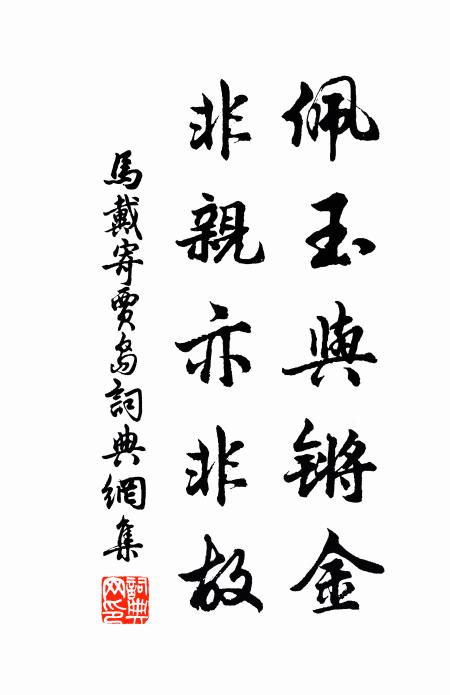 佩玉與锵金
非親亦非故
馬戴寄賈島詞典網集
詞典網印